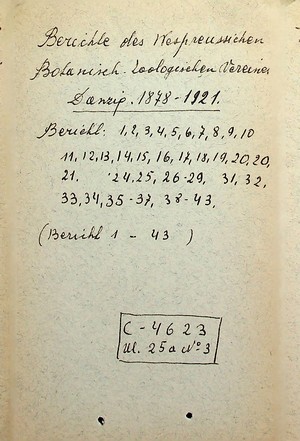 Berichte des Wespreussichen
Botanisch-Zoologischen Vereines
Danzig. 1878-1921.
Bericht: 1,2,3,4,5,6,7,8,9,10
11,12,13,14,15, 16,17,18,19,20,20,
21. 24.25, 26-29, 31, 32,
33,34,35-37, 38-43,
(Bericht 1 - 43 )
C-4623
Ul. 25a No 3